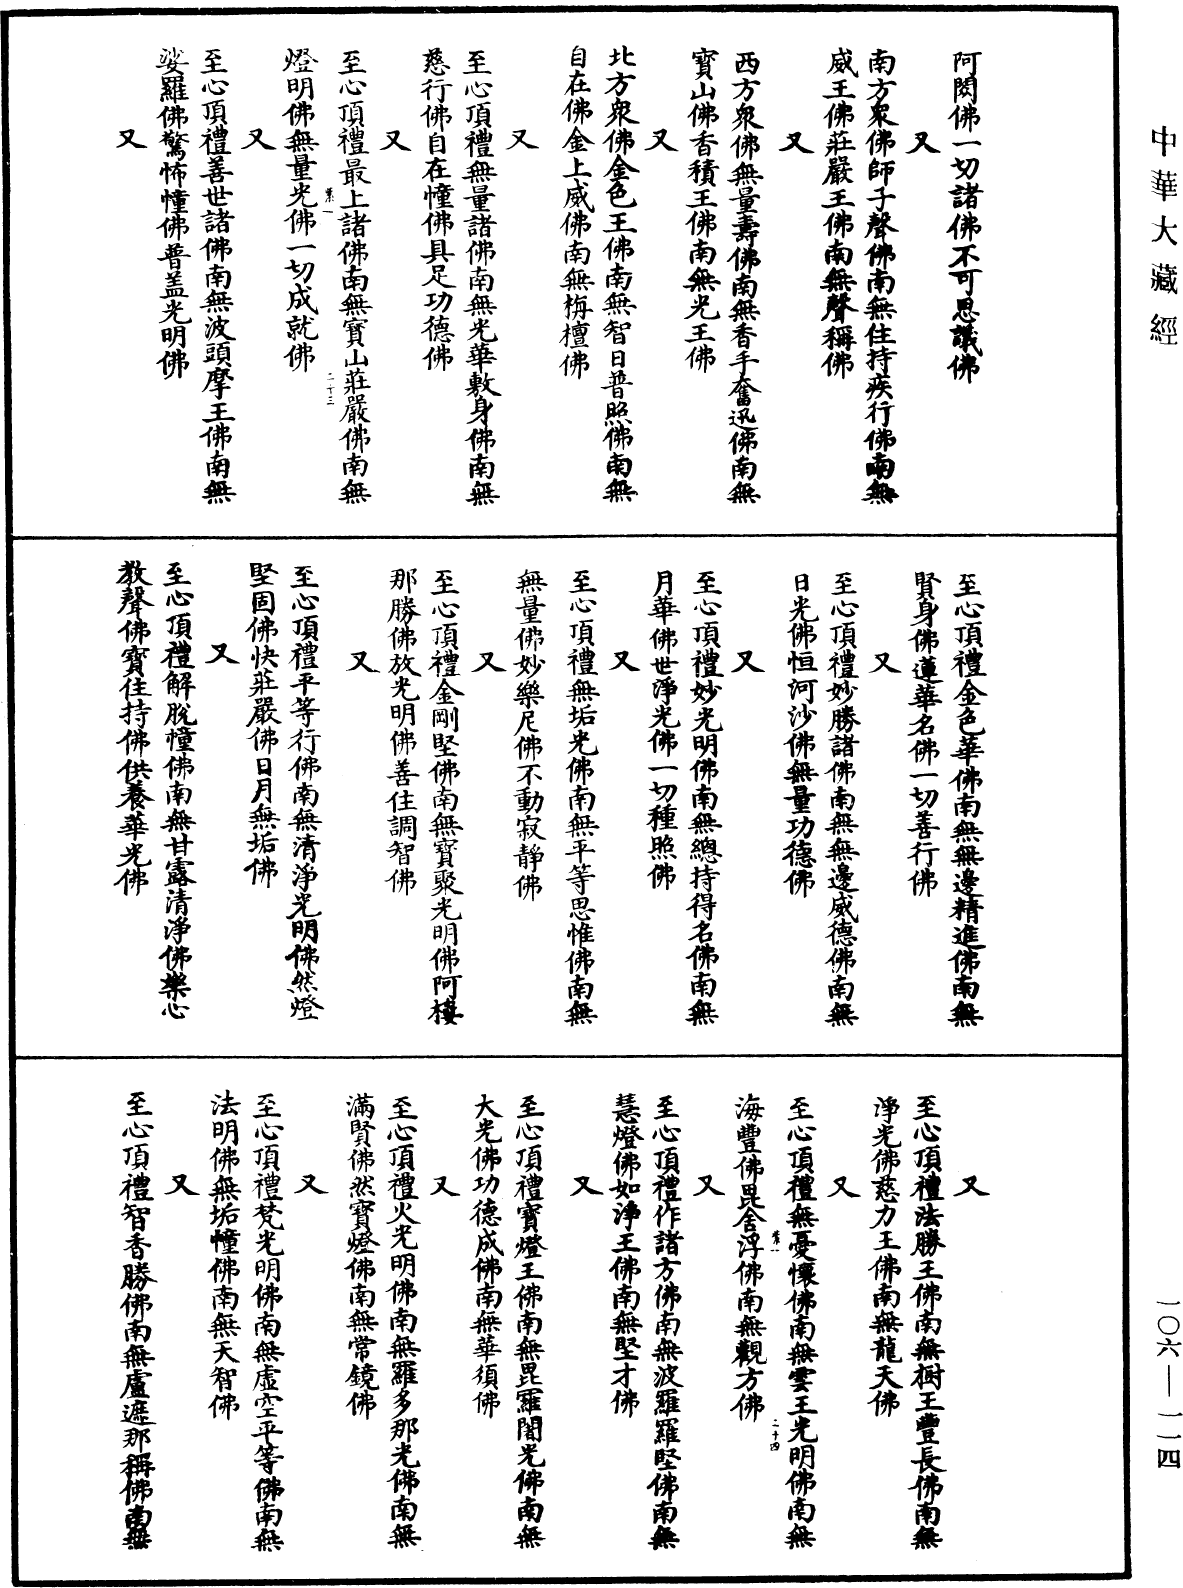 中華大藏經
阿閦佛一切諸佛不可思議佛
又
南方衆佛師子聲佛南無住持疾行佛南無
威王佛莊嚴王佛南無聲稱佛
又
西方衆佛無量壽佛南無香手奮迅佛南無
寶山佛香積王佛南無光王佛
又
北方衆佛金色王佛南無智日普照佛南無
自在佛金上威佛南無栴檀佛
又
至心頂禮無量諸佛南無光華敷身佛南無
慈行佛自在幢佛具足功德佛
又
至心頂禮最上諸佛南無寶山莊嚴佛南無
二十三
燈明佛無量光佛一切成就佛
又
至心頂禮善世諸佛南無波頭摩王佛南無
娑羅佛驚怖幢佛普蓋光明佛
又
至心頂禮金色華佛南無無邊精進佛南無
賢身佛蓮華名佛一切善行佛
又
至心頂禮妙勝諸佛南無無邊威德佛南無
日光佛恒河沙佛無量功德佛
又
至心頂禮妙光明佛南無總持得名佛南無
月華佛世淨光佛一切種照佛
又
至心頂禮無垢光佛南無平等思惟佛南無
無量佛妙樂尼佛不動寂靜佛
又
至心頂禮金剛堅佛南無寶聚光明佛阿樓
那勝佛放光明佛善住調智佛
又
至心頂禮平等行佛南無清淨光明佛然燈
堅固佛快莊嚴佛日月無垢佛
又
至心頂禮解脫幢佛南無甘露清淨佛樂心
教聲佛寶住持佛供養華光佛
又
至心頂禮法勝王佛南無樹王豐長佛南無
淨光佛慈力王佛南無龍天佛
又
至心頂禮無憂懷佛南無雲王光明佛南無
二十四
海豐佛毘舍浮佛南無觀方佛
又
至心頂禮作諸方佛南無波羅羅堅佛南無
慧燈佛如淨王佛南無堅才佛
又
至心頂禮寶燈王佛南無毘羅闍光佛南無
大光佛功德成佛南無華須佛
又
至心頂禮火光明佛南無羅多那光佛南無
滿賢佛然寶燈佛南無常鏡佛
又
至心頂禮梵光明佛南無虛空平等佛南無
法明佛無垢幢佛南無天智佛
又
至心頂禮智香勝佛南無盧遮那稱佛南無
一〇六—一一四